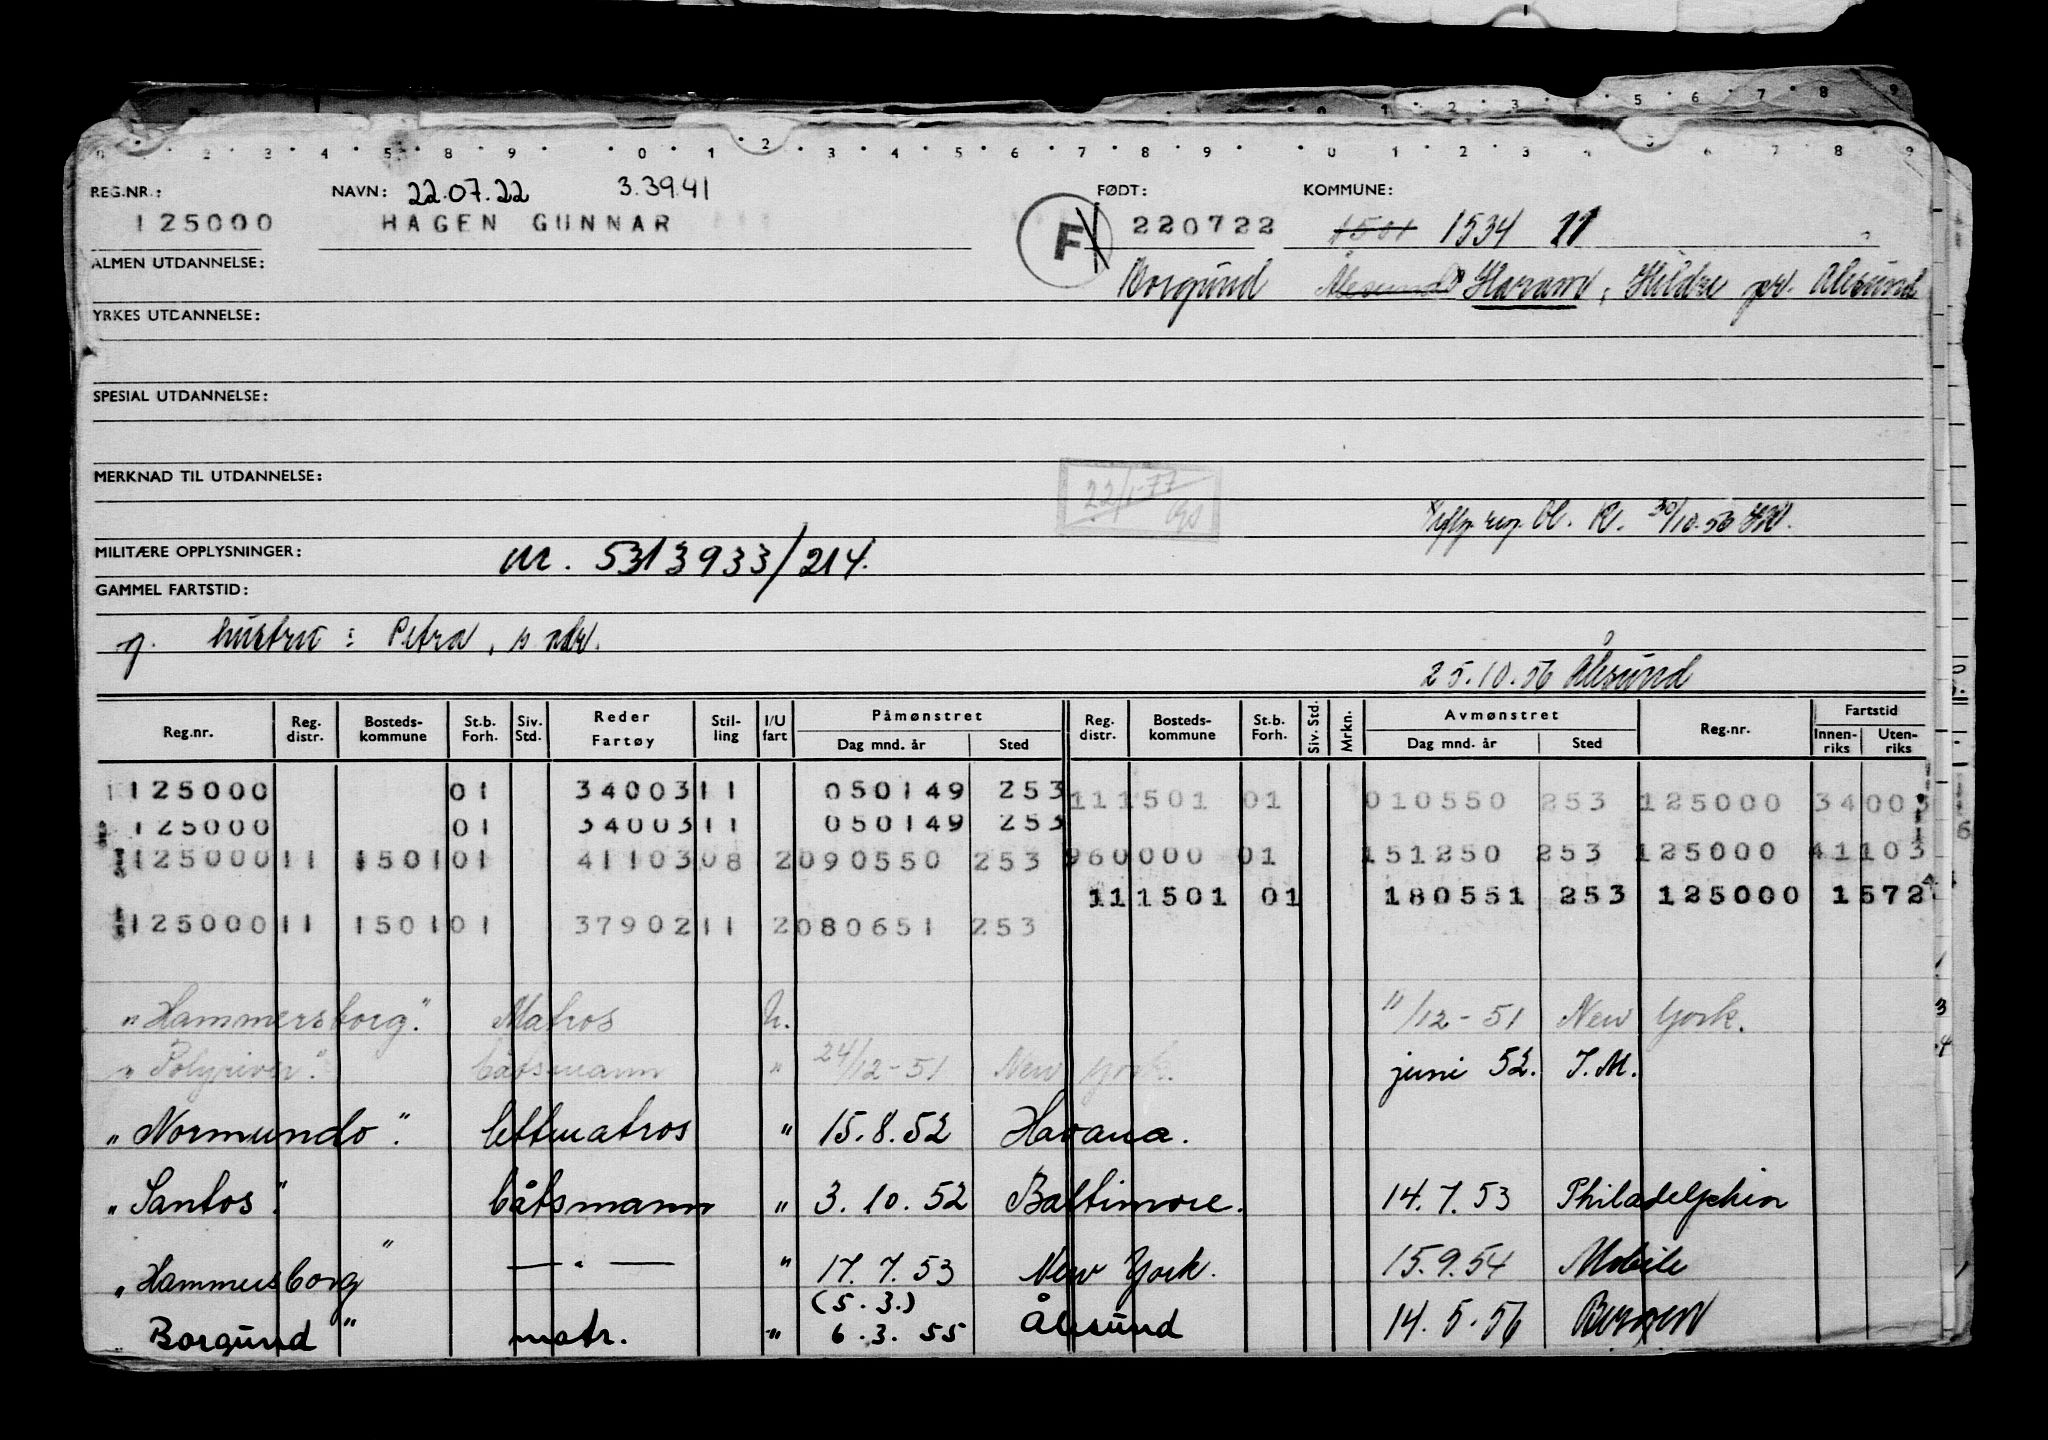 2 3 4 5 8 9 0 1 2 3 4 5 6 7 8 9 0 1 2 3 4 5 6 7 8 9
REG.NR.: NAVN: 22.07.22 3.39.41 FØDT: KOMMUNE:
125000 HAGEN GUNNAR F 220722 1501 1534 11
ALMEN UTDANNELSE: Borgund Ålesund Haram, Hildre pr. Ålesund
YRKES UTDANNELSE:
SPESIAL UTDANNELSE:
MERKNAD TIL UTDANNELSE:
22/1-77
30/10.56
MILITÆRE OPPLYSNINGER: nr. 5313933/214.
GAMMEL FARTSTID:
g. hustru: Petra, s. adr.
25.10.56 Ålesund
Reg.nr. Reg. distr. Bosteds-kommune St.b. Forh. Siv. Std. Reder Fartøy Stil-ling I/U fart Påmønstret Dag mnd. år Sted Reg. distr. Bosteds-kommune St.b. Forh. Siv. Std. Mrkn. Avmønstret Dag mnd. år Sted Reg.nr. Fartstid Innen-riks Uten-riks
125000 01 34003 11 050149 253 11 1501 01 010550 253 125000 34003
125000 01 34003 11 050149 253
125000 11 1501 01 41103 08 2 090550 253 960000 01 151250 253 125000 41103
11 1501 01 180551 253 125000 1572
125000 11 1501 01 37902 11 2 080651 253
"Hammersborg". Matros U. 11/12-51 New York.
"Polyriver". båtsmann " 24/12-51 New York. juni 52. T.M.
"Normundo". lettmatros " 15.8.52 Havana.
"Santos". båtsmann " 3.10.52 Baltimore. 14.7.53 Philadelphia
"Hammersborg" — " — " 17.7.53 New York. 15.9.54 Mobile
(5.3.)
Borgund" matr. " 6.3.55 Ålesund 14.5.56 Bergen